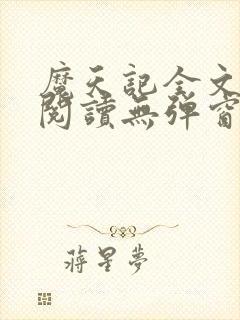 麿天記全文
閱讀無彈窗
蔣星夢